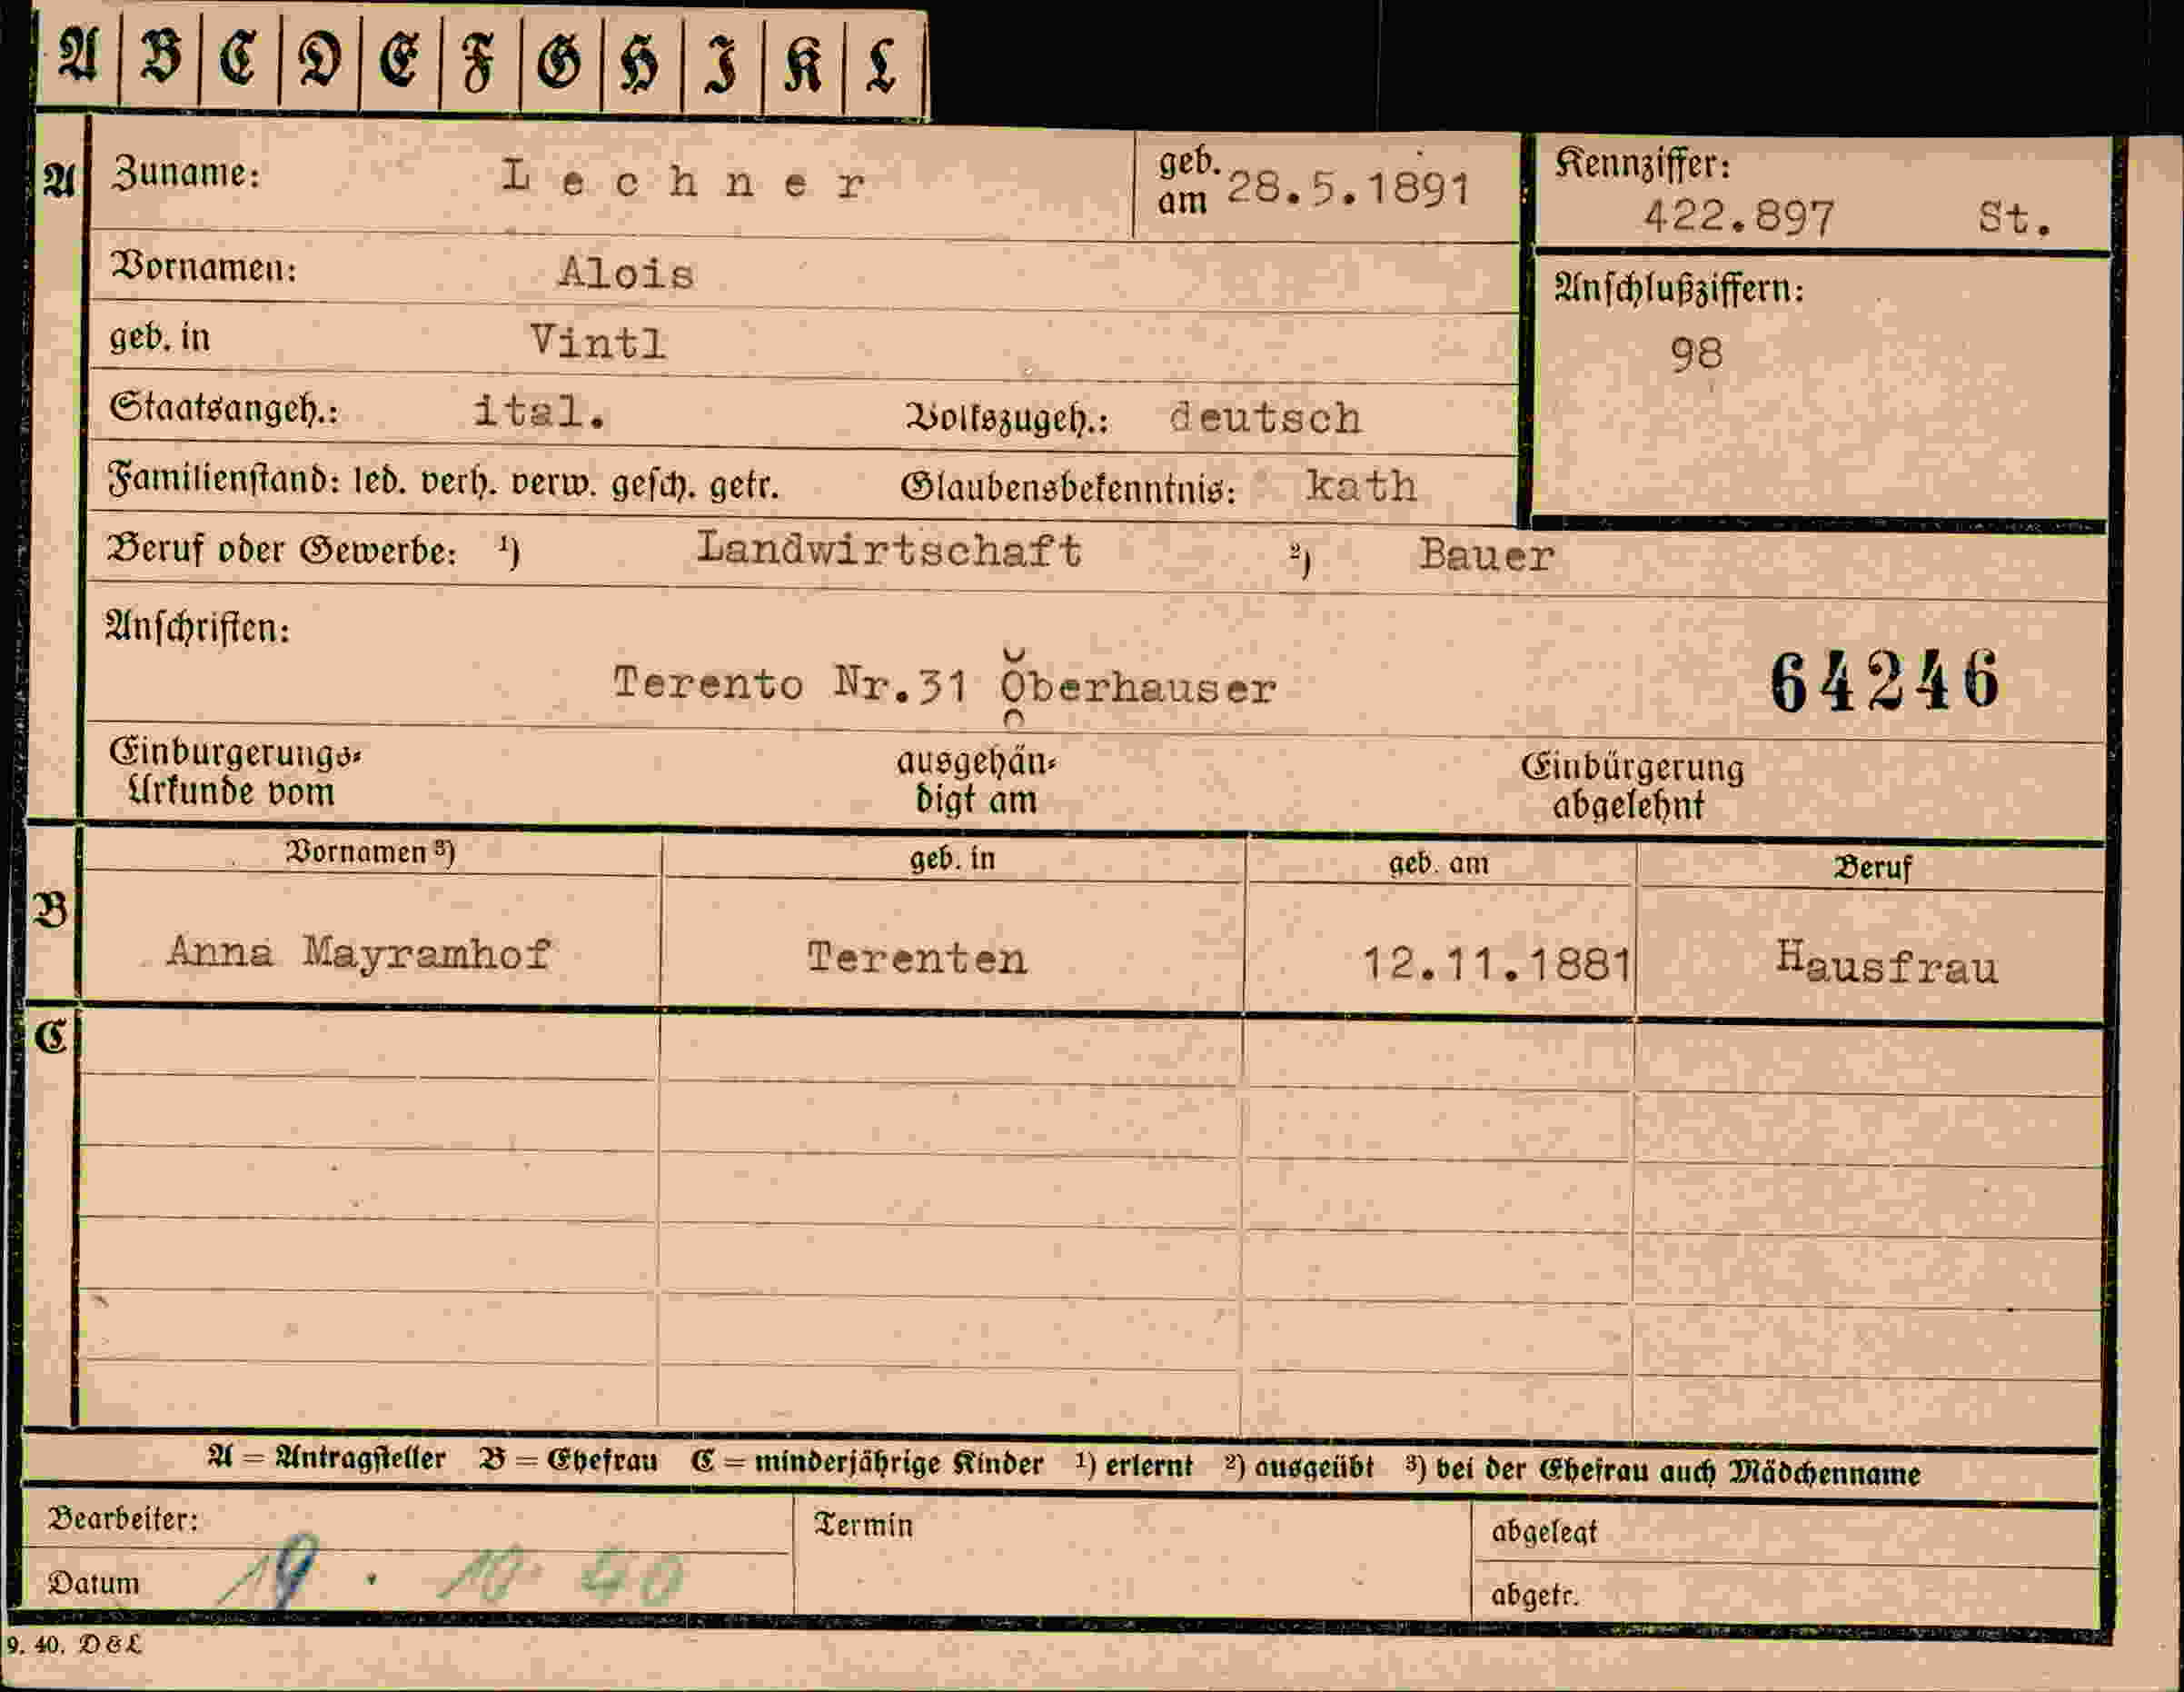 A B C D E F G H I K L
A Zuname: Lechner geb. am 28.5.1891 Kennziffer: 422.897 St.
Vornamen: Alois Anschlußziffern:
geb. in Vintl 98
Staatsangeh.: ital. Volkszugeh.: deutsch
Familienstand: led. verh. verw. gesch. getr. Glaubensbekenntnis: kath
Beruf oder Gewerbe: 1) Landwirtschaft 2) Bauer
Anschriften:
Terento Nr.31 Oberhauser 64246
Einbürgerungs- ausgehän- Einbürgerung
Urkunde vom digt am abgelehnt
Vornamen 3) geb. in geb. am Beruf
B
Anna Mayramhof Terenten 12.11.1881 Hausfrau
C
A = Antragsteller B = Ehefrau C = minderjährige Kinder 1) erlernt 2) ausgeübt 3) bei der Ehefrau auch Mädchenname
Bearbeiter: Termin abgelegt
Datum 19. 10. 40 abgetr.
9. 40. D&L